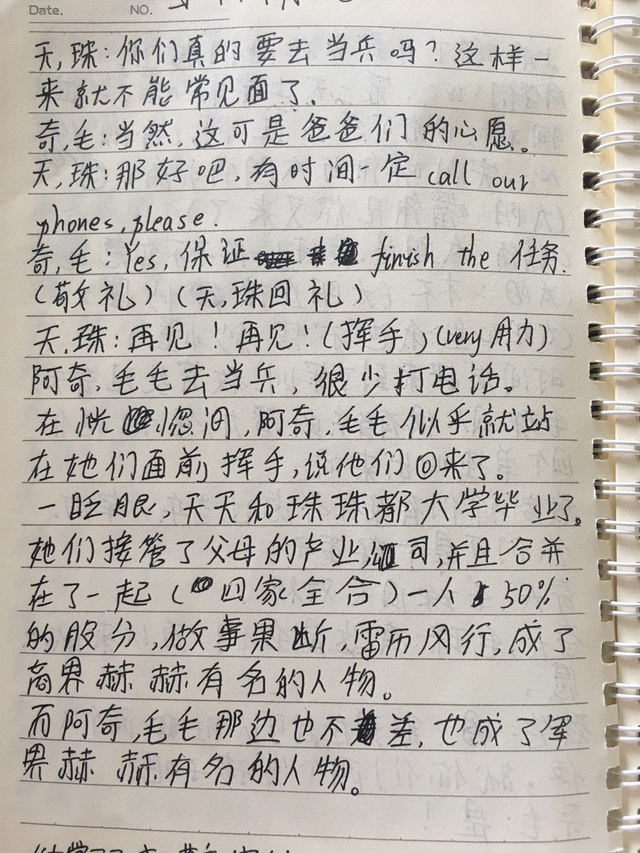 Date. NO.
天,珠:你们真的要去当兵吗?这样一
来就不能常见面了.
奇,毛:当然,这可是爸爸们的心愿。
天,珠:那好吧,有时间一定call our
phones,please.
奇,毛:Yes,保证 finish the 任务.
(敬礼)(天,珠回礼)
天,珠:再见!再见!(挥手)(very用力)
阿奇,毛毛去当兵,很少打电话。
在恍惚间,阿奇,毛毛似乎就站
在她们面前挥手,说他们回来了。
一眨眼,天天和珠珠都大学毕业了。
她们接管了父母的产业,司,并且合并
在了一起(四家全合)一人50%
的股份,做事果断,雷厉风行,成了
商界赫赫有名的人物。
而阿奇,毛毛那边也不差,也成了军
界赫赫有名的人物。